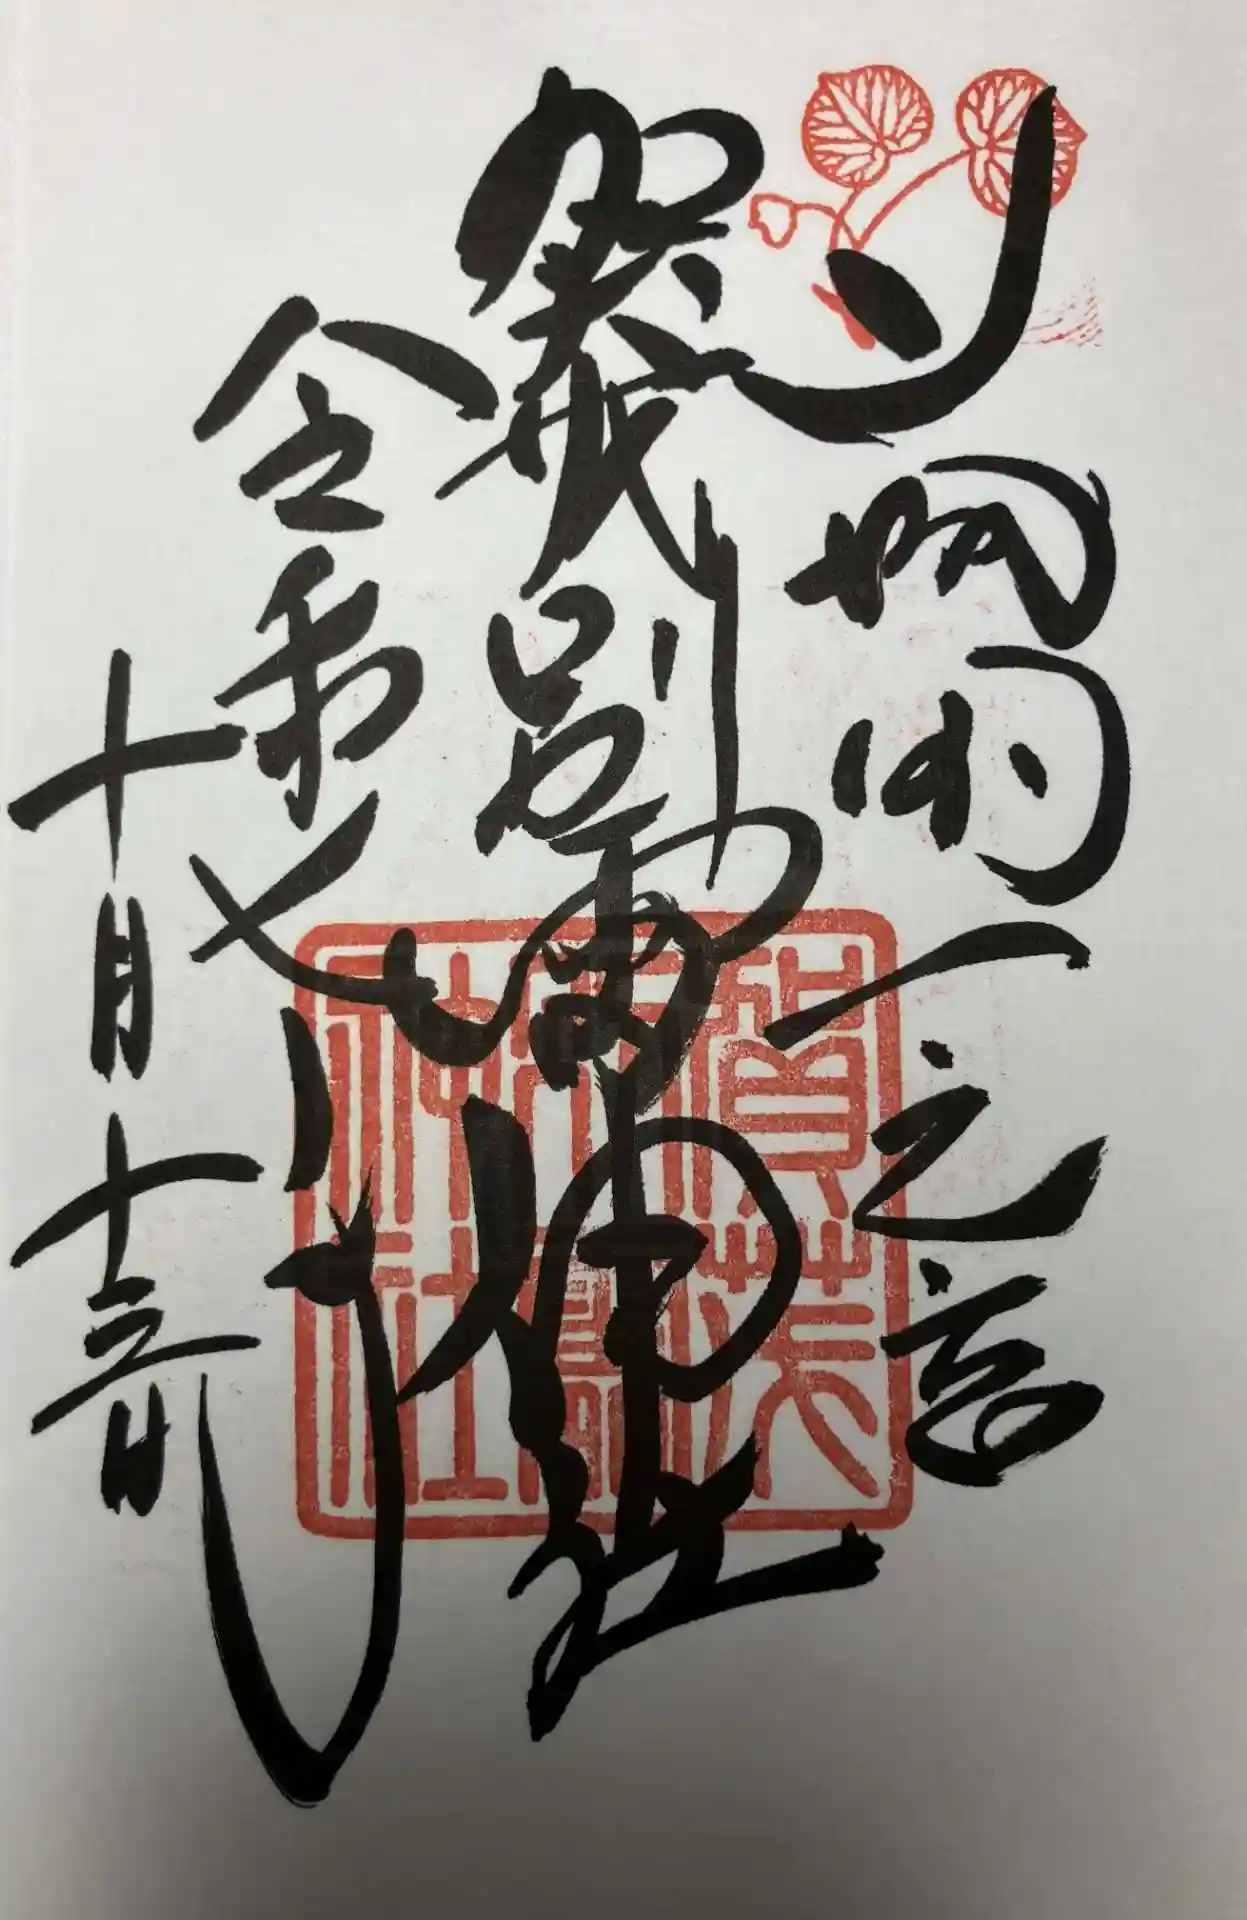 山城国一之宮
賀茂別雷神社
令和七年
十月十三日
賀茂
別雷
神社